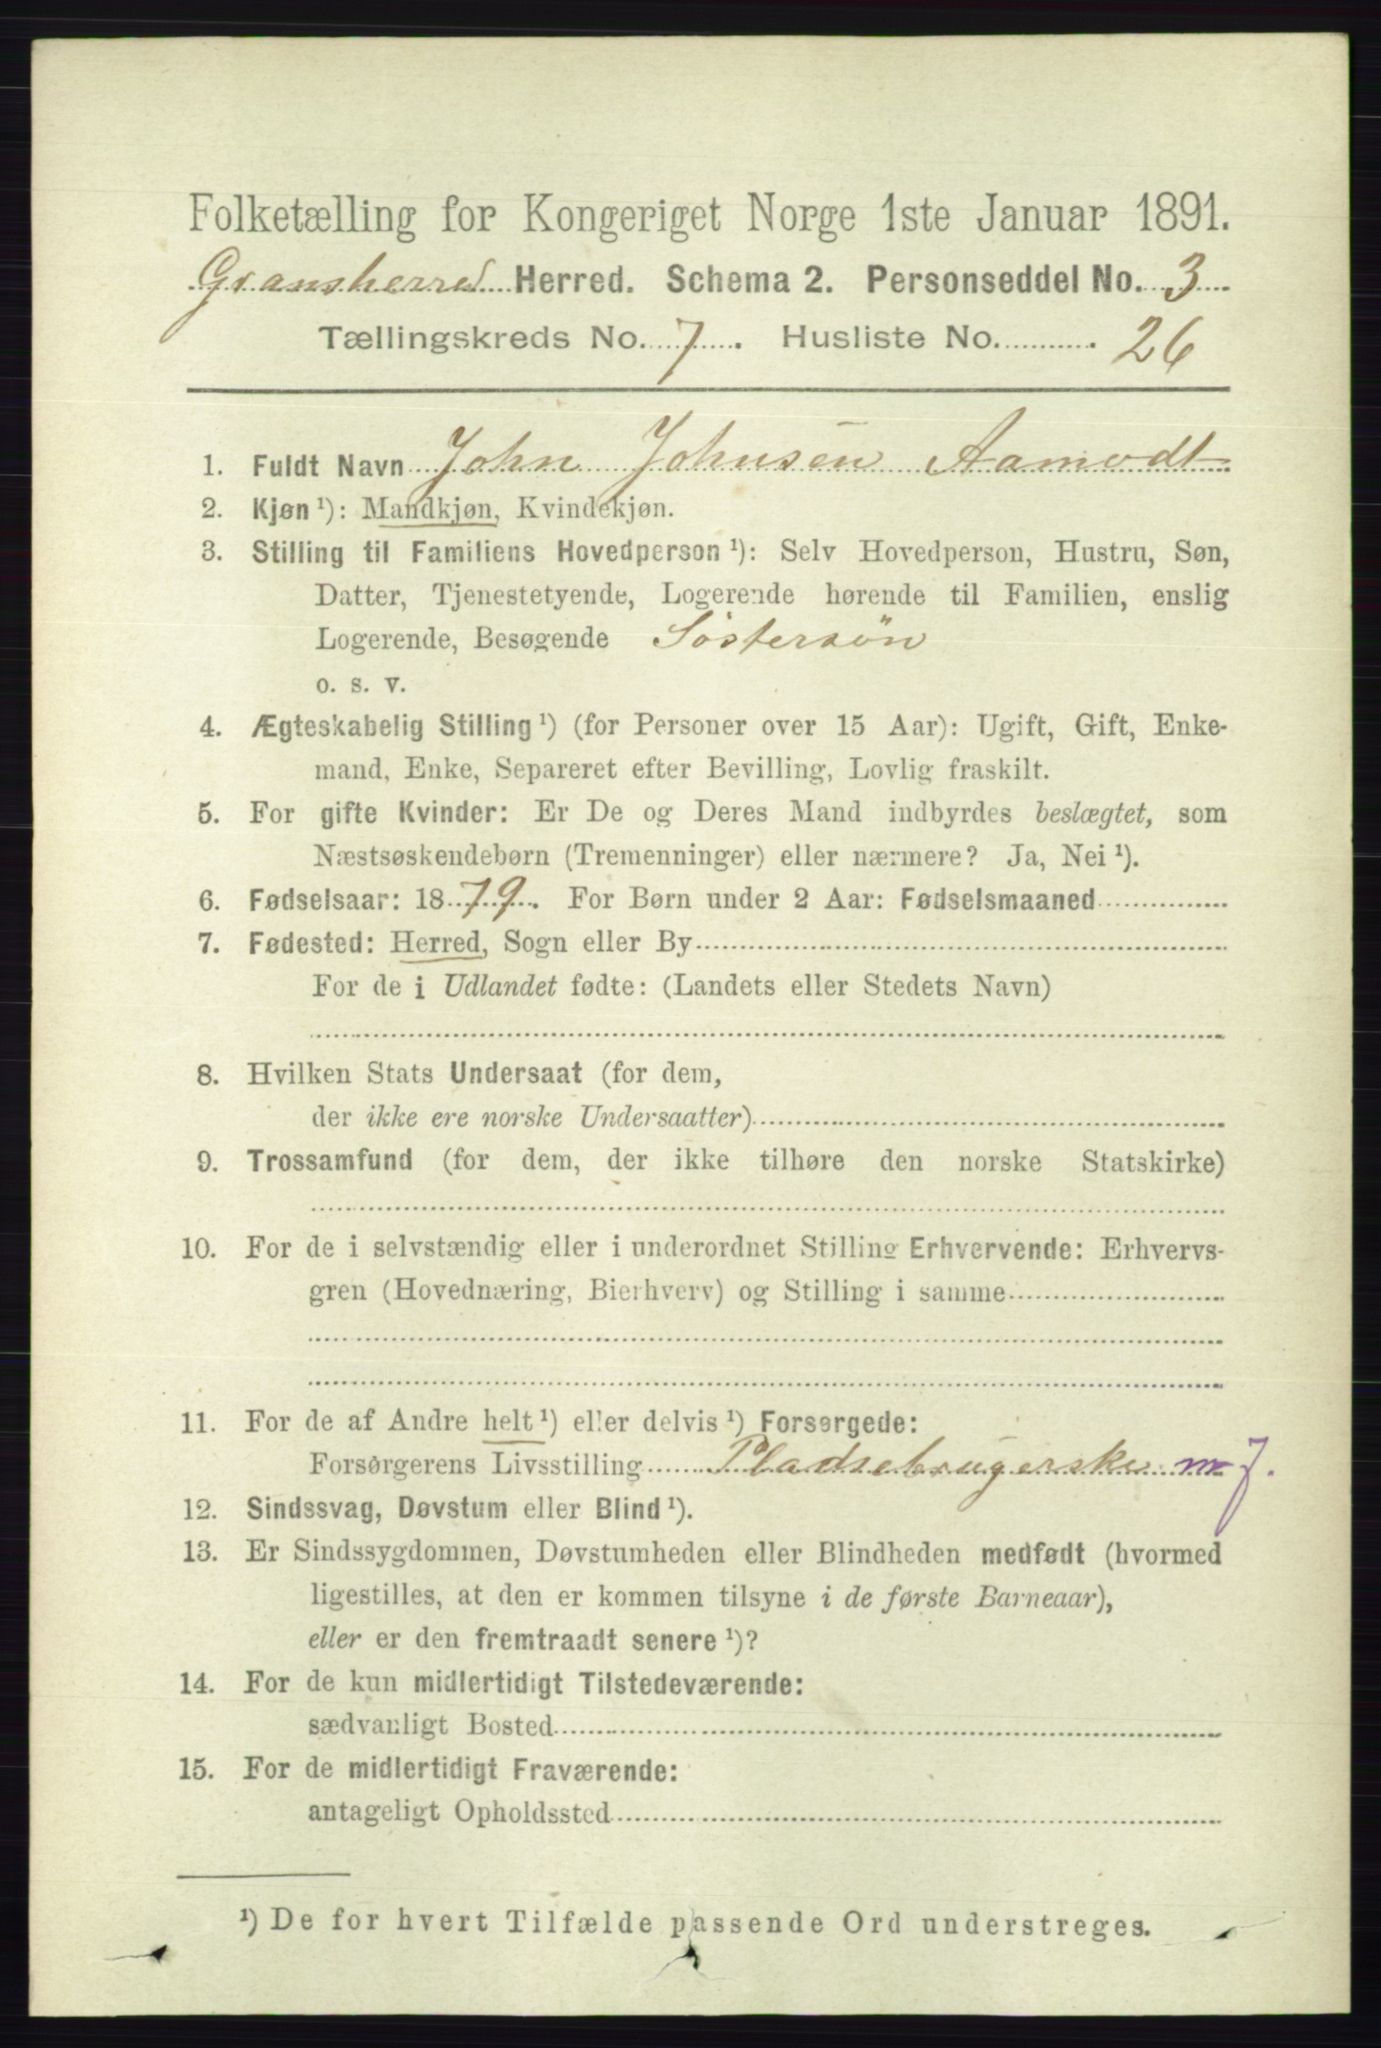 Folketælling for Kongeriget Norge 1ste Januar 1891.
Gransherred Herred. Schema 2. Personseddel No. 3
Tællingskreds No. 7. Husliste No. 26
1. Fuldt Navn John Johnsen Aamodt
2. Kjøn ¹): Mandkjøn, Kvindekjøn.
3. Stilling til Familiens Hovedperson ¹): Selv Hovedperson, Hustru, Søn,
Datter, Tjenestetyende, Logerende hørende til Familien, enslig
Logerende, Besøgende Søstersøn
o. s. v.
4. Ægteskabelig Stilling ¹) (for Personer over 15 Aar): Ugift, Gift, Enke-
mand, Enke, Separeret efter Bevilling, Lovlig fraskilt.
5. For gifte Kvinder: Er De og Deres Mand indbyrdes beslægtet, som
Næstsøskendebørn (Tremenninger) eller nærmere? Ja, Nei ¹).
6. Fødselsaar: 1879. For Børn under 2 Aar: Fødselsmaaned
7. Fødested: Herred, Sogn eller By
For de i Udlandet fødte: (Landets eller Stedets Navn)
8. Hvilken Stats Undersaat (for dem,
der ikke ere norske Undersaatter)
9. Trossamfund (for dem, der ikke tilhøre den norske Statskirke)
10. For de i selvstændig eller i underordnet Stilling Erhvervende: Erhvervs-
gren (Hovednæring, Bierhverv) og Stilling i samme
11. For de af Andre helt ¹) eller delvis ¹) Forsørgede:
Forsørgerens Livsstilling Pladsebrugerske m J.
12. Sindssvag, Døvstum eller Blind ¹).
13. Er Sindssygdommen, Døvstumheden eller Blindheden medfødt (hvormed
ligestilles, at den er kommen tilsyne i de første Barneaar),
eller er den fremtraadt senere ¹)?
14. For de kun midlertidigt Tilstedeværende:
sædvanligt Bosted
15. For de midlertidigt Fraværende:
antageligt Opholdssted
¹) De for hvert Tilfælde passende Ord understreges.